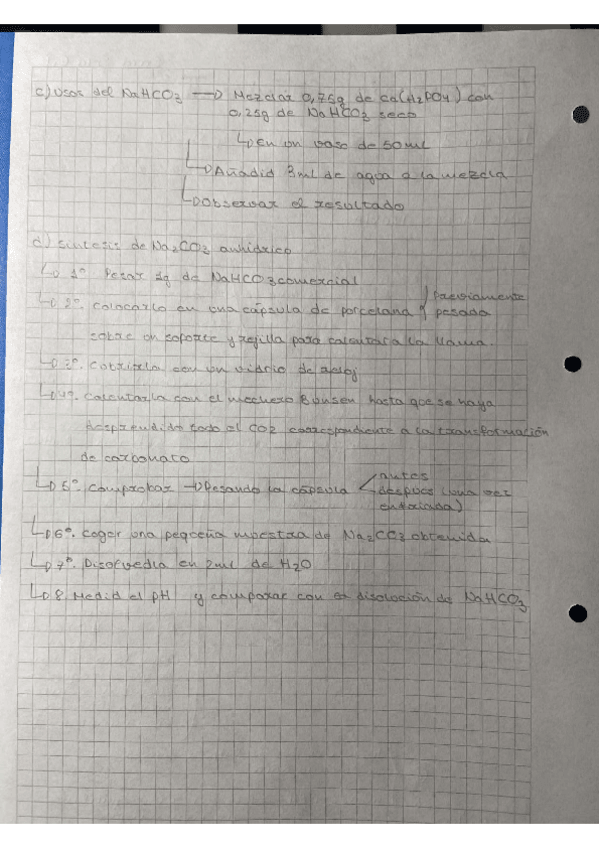 c) Usos del NaHCO3 → Mezclar 0,75g de Ca(H2PO4) con
0,25g de NaHCO3 seco
↳ En un vaso de 50ml
↳ Añadid 3ml de agua a la mezcla
↳ Observar el resultado
d) Síntesis de Na2CO3 anhídrico
↳ 1º. Pesar 2g de NaHCO3 comercial
↳ 2º. Colocarlo en una cápsula de porcelana } previamente pesada
sobre un soporte y rejilla para calentar a la llama.
↳ 3º. Cubrirla con un vidrio de reloj
↳ 4º. Calentarla con el mechero Bunsen hasta que se haya
desprendido todo el CO2 correspondiente a la transformación
de carbonato
↳ 5º. Comprobar → Pesando la cápsula < antes
después (una vez
enfriada)
↳ 6º. Coger una pequeña muestra de Na2CO3 obtenida
↳ 7º. Disolvedla en 2ml de H2O
↳ 8. Medid el pH y comparar con disolución de NaHCO3